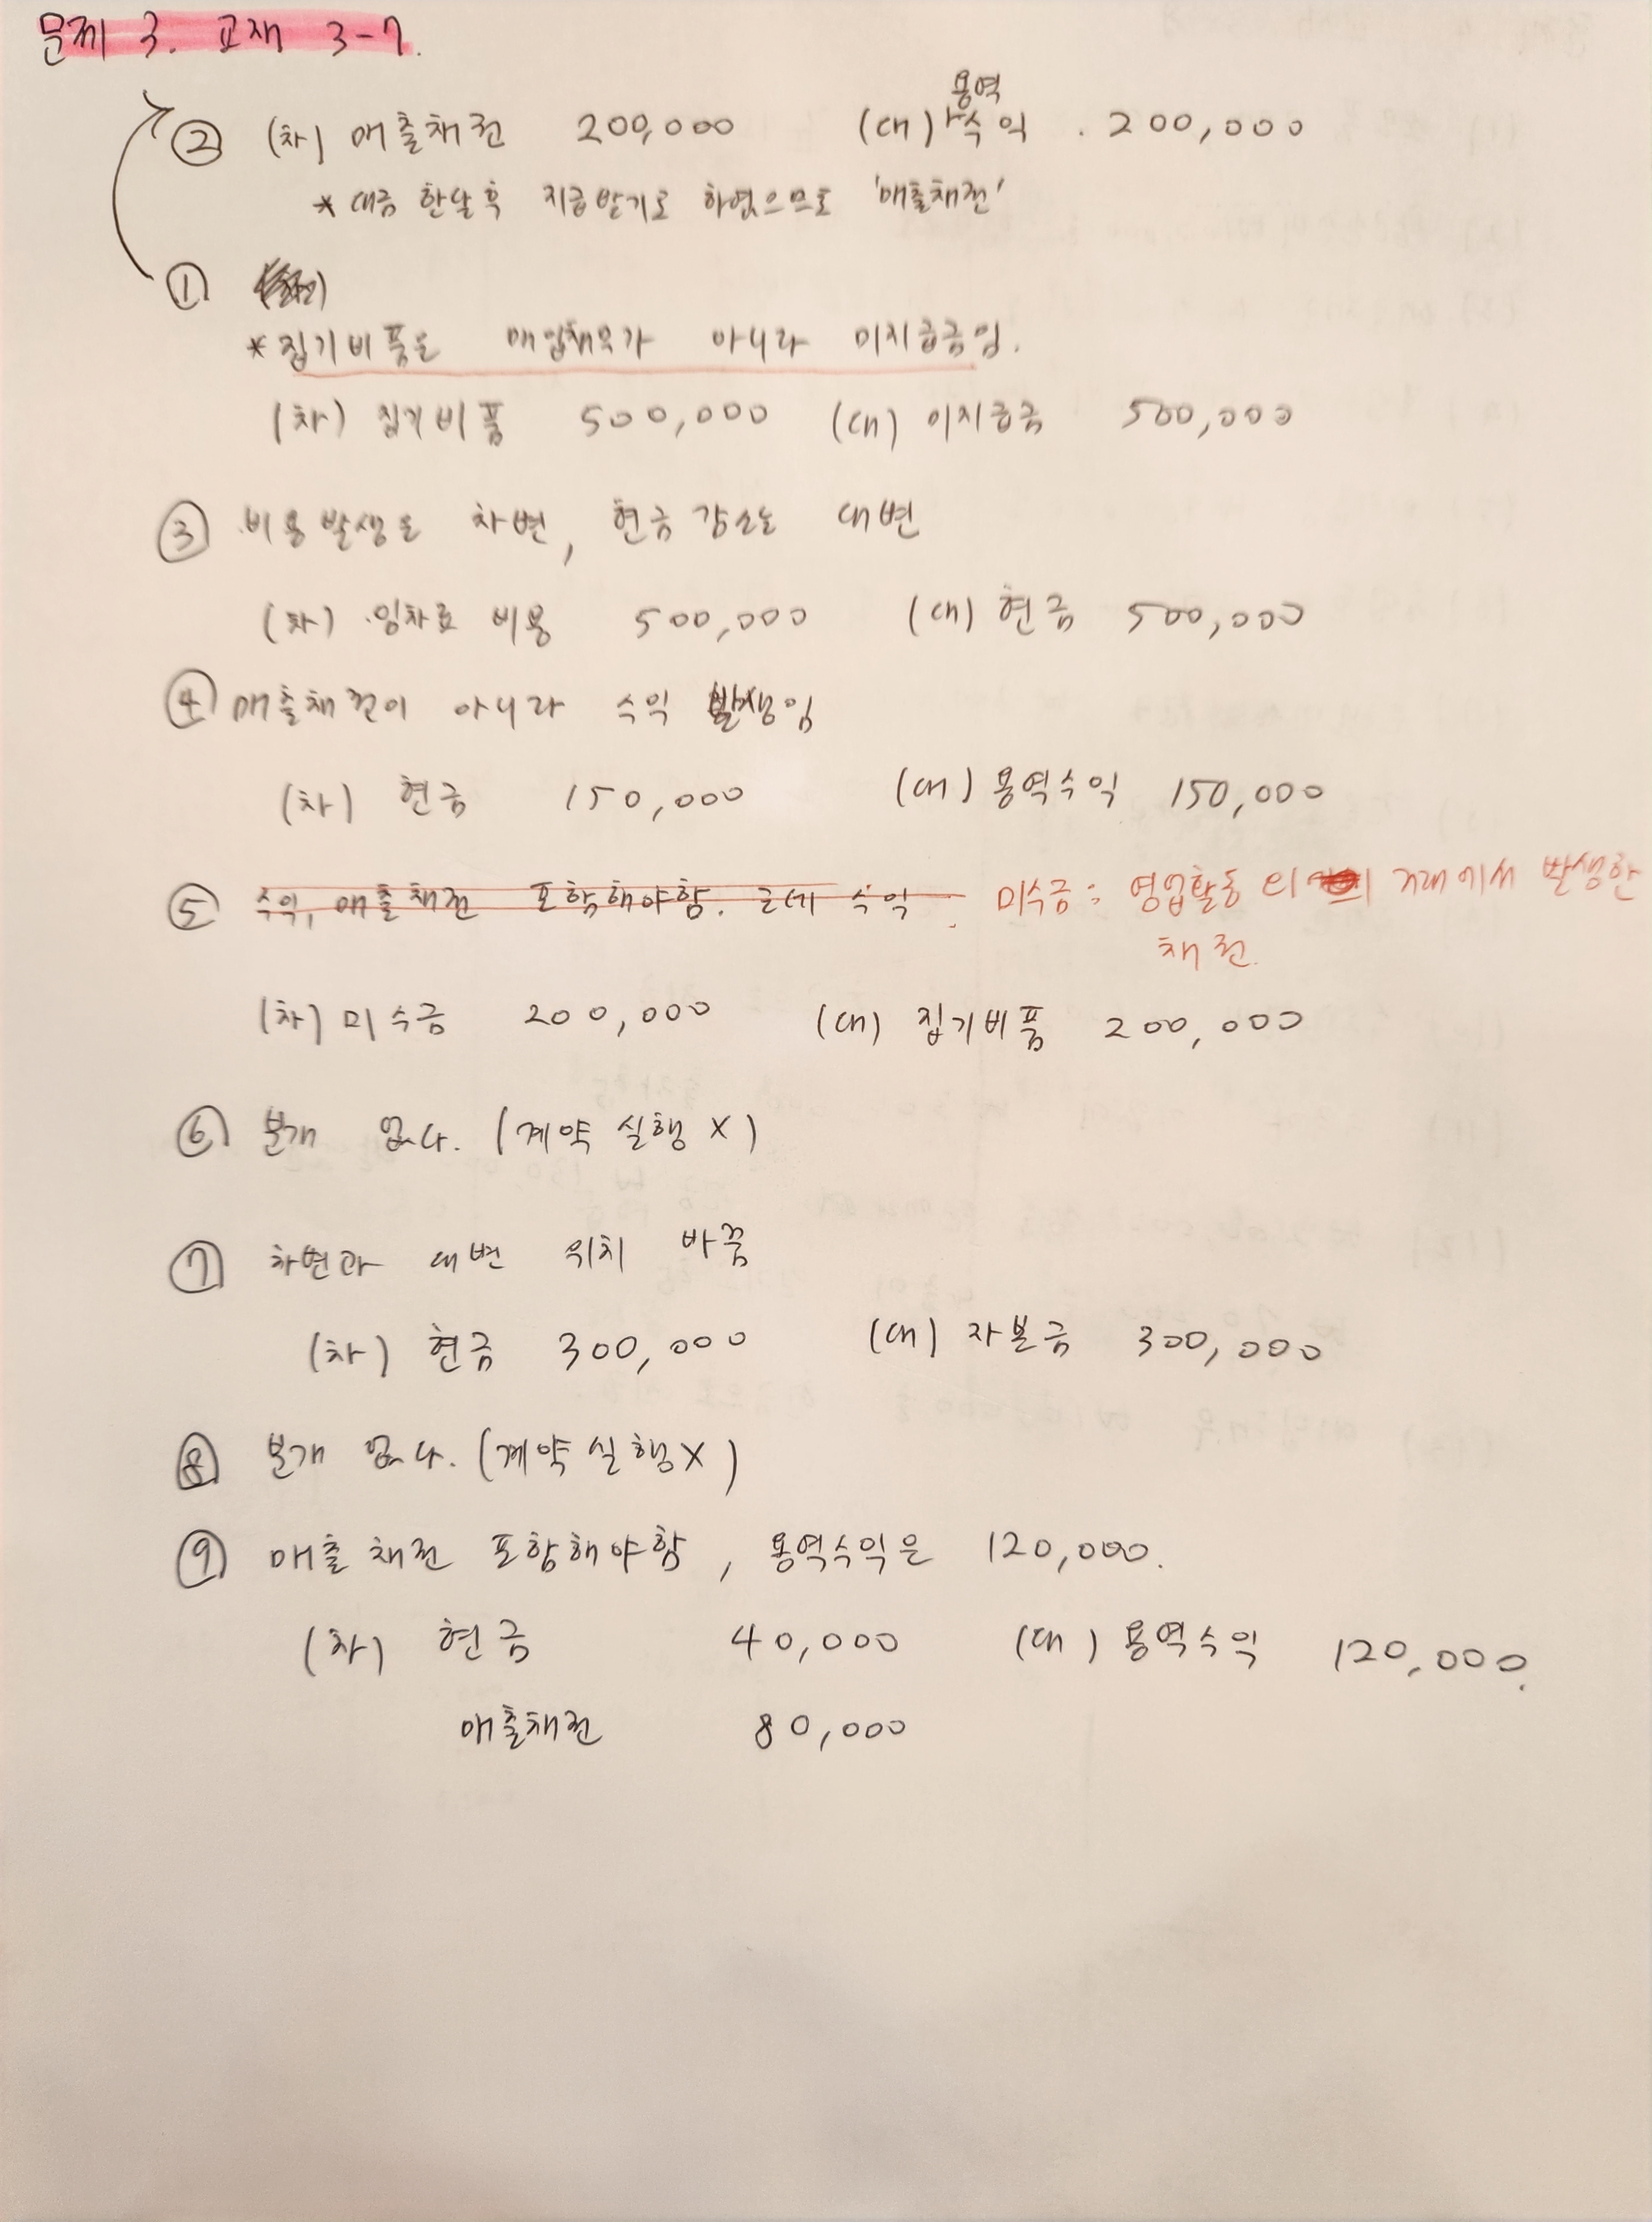 문제 3. 교재 3-7.
용역
② (차) 매출채권 200,000 (대) 수익 . 200,000
* 대금 한달 후 지급받기로 하였으므로 '매출채권'
①
* 집기비품은 매입채무가 아니라 미지급금임.
(차) 집기비품 500,000 (대) 미지급금 500,000
③ 비용발생은 차변, 현금 감소는 대변
(차) 임차료 비용 500,000 (대) 현금 500,000
④ 매출채권이 아니라 수익 발생임
(차) 현금 150,000 (대) 용역수익 150,000
⑤ 수익, 매출채권 포함해야함. 근데 수익 . 미수금 : 영업활동 외 거래에서 발생한
채권.
(차) 미수금 200,000 (대) 집기비품 200,000
⑥ 분개 없다. (계약 실행 X)
⑦ 차변과 대변 위치 바꿈
(차) 현금 300,000 (대) 자본금 300,000
⑧ 분개 없다. (계약 실행 X)
⑨ 매출채권 포함해야함, 용역수익은 120,000.
(차) 현금 40,000 (대) 용역수익 120,000.
매출채권 80,000